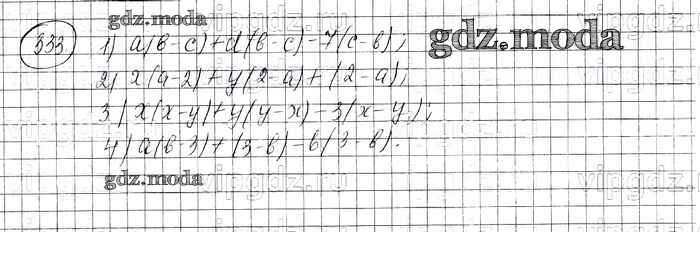 gdz.moda
333 1) a(в-c)+d(в-c)-7(c-в); gdz.moda
2) x(a-2)+y(2-a)+(2-a);
3) x(x-y)+y(y-x)-3(x-y);
4) a(в-3)+(3-в)-6(3-в).
gdz.moda vipgdz.ru vipgdz.ru